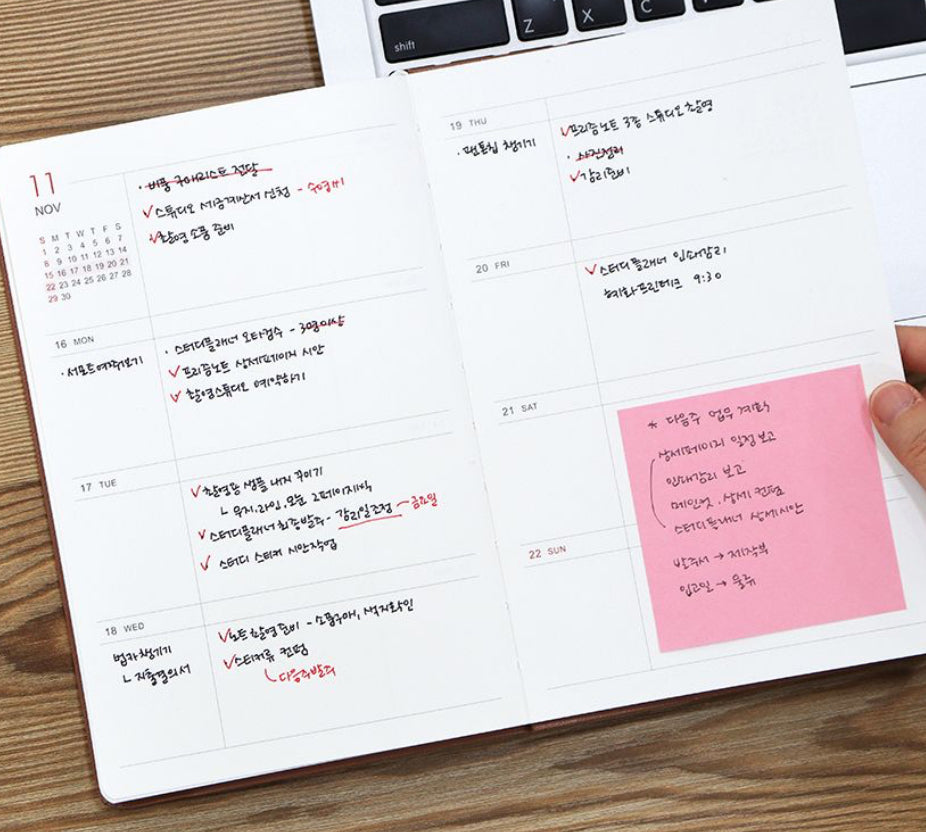 shift
Z
X
C
11
NOV
S M T W T F S
1 2 3 4 5 6 7
8 9 10 11 12 13 14
15 16 17 18 19 20 21
22 23 24 25 26 27 28
29 30
· 비품 구매리스트 전달
스튜디오 세금계산서 신청 - 수영씨
촬영 소품 준비
16 MON
· 서포트
· 스터디플래너 오타검수 - 3명이상
프리즘노트 상세페이지 시안
촬영스튜디오 예약하기
17 TUE
촬영용 샘플 내지 꾸미기
ㄴ 무지, 라인, 모눈 2페이지씩
스터디플래너 최종발주 - 감리일조정 - 금요일
스터디 스티커 시안작업
18 WED
법카챙기기
ㄴ 지출결의서
노트촬영준비 - 소품구매, 색지확인
스티커류 컨펌
ㄴ 다음주발주
19 THU
· 팬톤칩 챙기기
프리즘노트 3종 스튜디오 촬영
· 사진정리
감리준비
20 FRI
스터디플래너 인쇄감리
프린테크 9:30
21 SAT
22 SUN
* 다음주 업무 계획
상세페이지 일정보고
인쇄감리 보고
메인컷, 상세 컨펌
스터디플래너 상세시안
발주서 → 제작부
입고일 → 물류